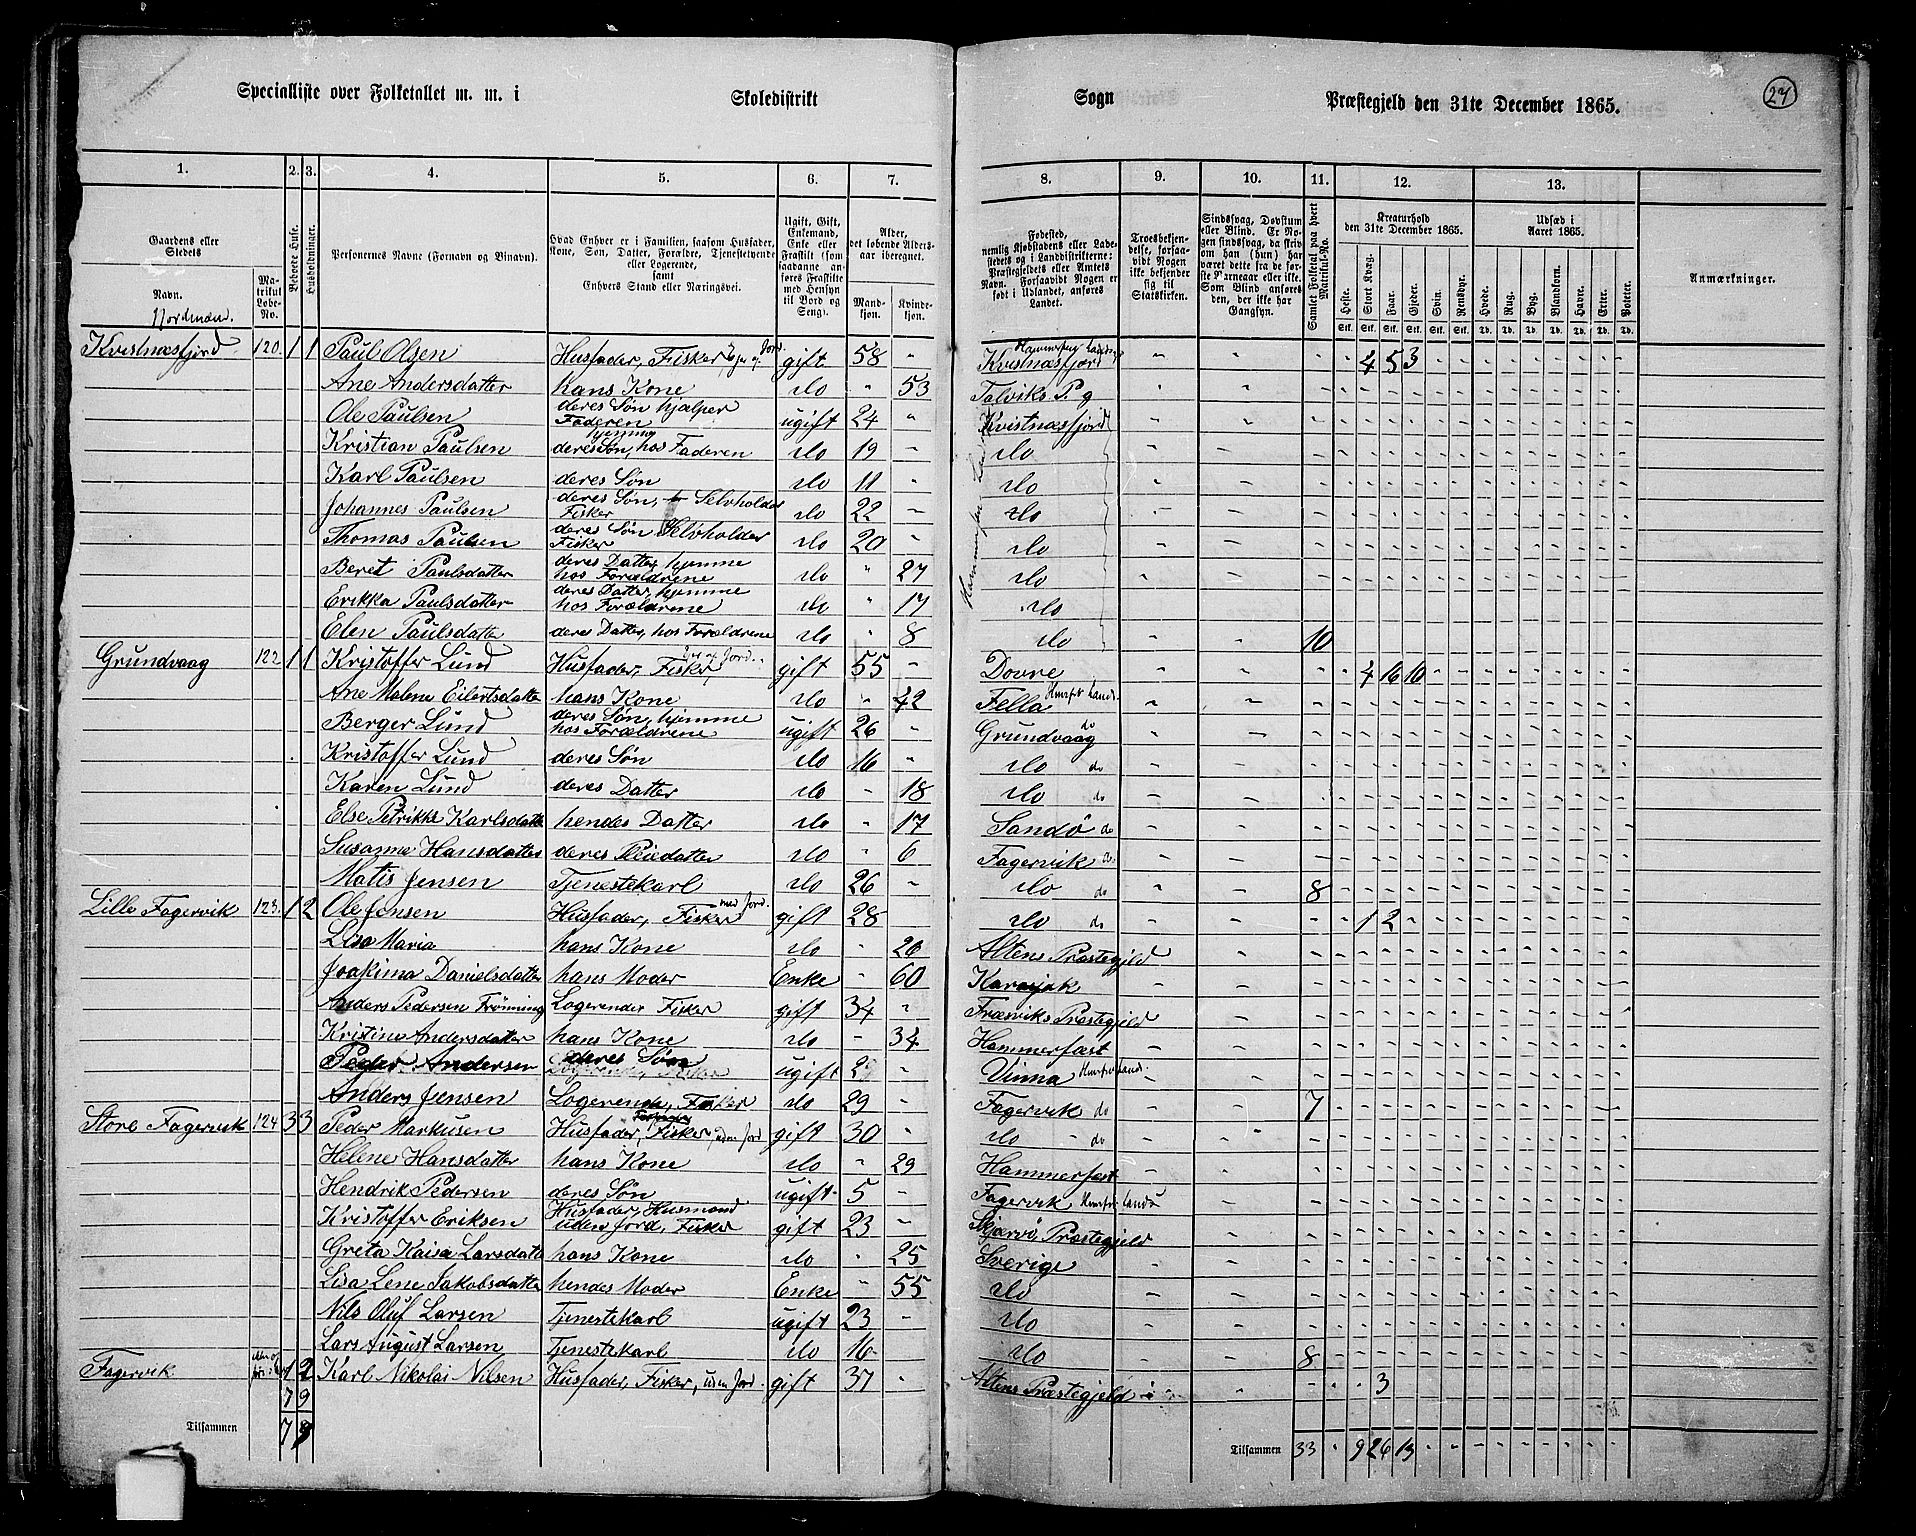 Specialliste over Folketallet m. m. i Skoledistrikt Sogn Præstegjeld den 31te December 1865. 27
1. 2. 3. 4. 5. 6. 7. 8. 9. 10. 11. 12. 13.
Gaardens eller Stedets
Navn.
Matrikul Løbe-No.
Beboede Huse.
Husholdninger.
Personernes Navne (Fornavn og Binavn).
Hvad Enhver er i Familien, saasom Husfader, Kone, Søn, Datter, Forældre, Tjenestetyende eller Logerende, samt Enhvers Stand eller Næringsvei.
Ugift, Gift, Enkemand, Enke eller Fraskilt (som saadanne anføres Fraskilte med Hensyn til Bord og Seng).
Alder, det løbende Aldersaar iberegnet.
Mandkjøn. Kvindekjøn.
Fødested, nemlig Kjøbstadens eller Ladestedets og i Landdistrikterne: Præstegjeldets eller Amtets Navn. Forsaavidt Nogen er født i Udlandet, anføres Landet.
Troesbekjendelse, forsaavidt Nogen ikke bekjender sig til Statskirken.
Sindssvag, Døvstum eller Blind. Er Nogen sindssvag, da skrives om han (hun) har været dette fra de første Barneaar eller ikke. Som Blind anføres den, der ikke har Gangsyn.
Samlet Folketal paa hvert Matrikul-No.
Kreaturhold den 31te December 1865.
Heste. Stort Kvæg. Faar. Gjeder. Svin. Rensdyr.
Udsæd i Aaret 1865.
Hvede. Rug. Byg. Blandkorn. Havre. Erter. Poteter.
Anmærkninger.
Kvistnæsfjord 120 1 1 Paul Olsen Husfader, Fisker gift 58 - Kvistnæsfjord 4 5 3
Ane Andersdatter hans Kone do - 53 Talviks P. g
Ole Paulsen deres Søn hjælper Faderen ugift 24 - Kvistnæsfjord
Kristian Paulsen deres Søn, hos Faderen do 19 - do
Karl Paulsen deres Søn do 11 - do
Johannes Paulsen deres Søn, Selvholder Fisker do 22 - do
Thomas Paulsen deres Søn Selvholder Fisker do 20 - do
Beret Paulsdatter deres Datter hjemme hos Forældrene do - 27 do
Erikka Paulsdatter deres Datter, hjemme hos Forældrene do - 17 do
Elen Paulsdatter deres Datter, hos Forældrene do - 8 do 10
Grundvaag 122 1 1 Kristoffer Lund Husfader, Fisker, gift 55 - Dovre 4 16 10
Ane Malene Eilertsdatter hans Kone do - 42 Fella
Berger Lund deres Søn, hjemme hos Forældrene ugift 26 - Grundvaag do
Kristoffer Lund deres Søn do 16 - do do
Karen Lund deres Datter do - 18 do do
Else Petrikke Karlsdatter hendes Datter do - 17 Sandø do
Susanne Hansdatter deres Pleiedatter do - 6 Fagervik do
Matis Jensen Tjenestekarl do 26 - do do 8
Lille Fagervik 123 1 2 Ole Jensen Husfader, Fisker med Jord. gift 28 - do do 1 2
Lisa Maria hans Kone do - 26 Altens Præstegjeld
Joakima Danielsdatter hans Moder Enke - 60
Anders Pedersen Frönning Logerende Fisker gift 34 -
Kristine Andersdatter hans Kone do - 34 Hammerfest
Peder Andersen deres Søn ugift
Anders Jensen Logerende, Fisker do 29 - Fagervik do 7
Store Fagervik 124 3 3 Peder Markusen Husfader, Fisker, uden Jord gift 30 - do do
Helene Hansdatter hans Kone do - 29 Hammerfest
Hendrik Pedersen deres Søn ugift 5 - Fagervik
Kristoffer Eriksen Husfader, Husmand uden Jord, Fisker gift 23 - Skjærvø Præstegjeld
Greta Kaisa Larsdatter hans Kone do - 25 Sverige
Lisa Lene Jakobsdatter hendes Moder Enke - 55 do
Nils Oluf Larsen Tjenestekarl ugift 23 - do
Lars August Larsen Tjenestekarl do 16 - do 8
Fagervik 1 2 Karl Nikolai Nilsen Husfader, Fisker, uden Jord. gift 37 - Altens Præstegjeld 3
7 9
Tilsammen 7 9 Tilsammen 33 - 9 26 13